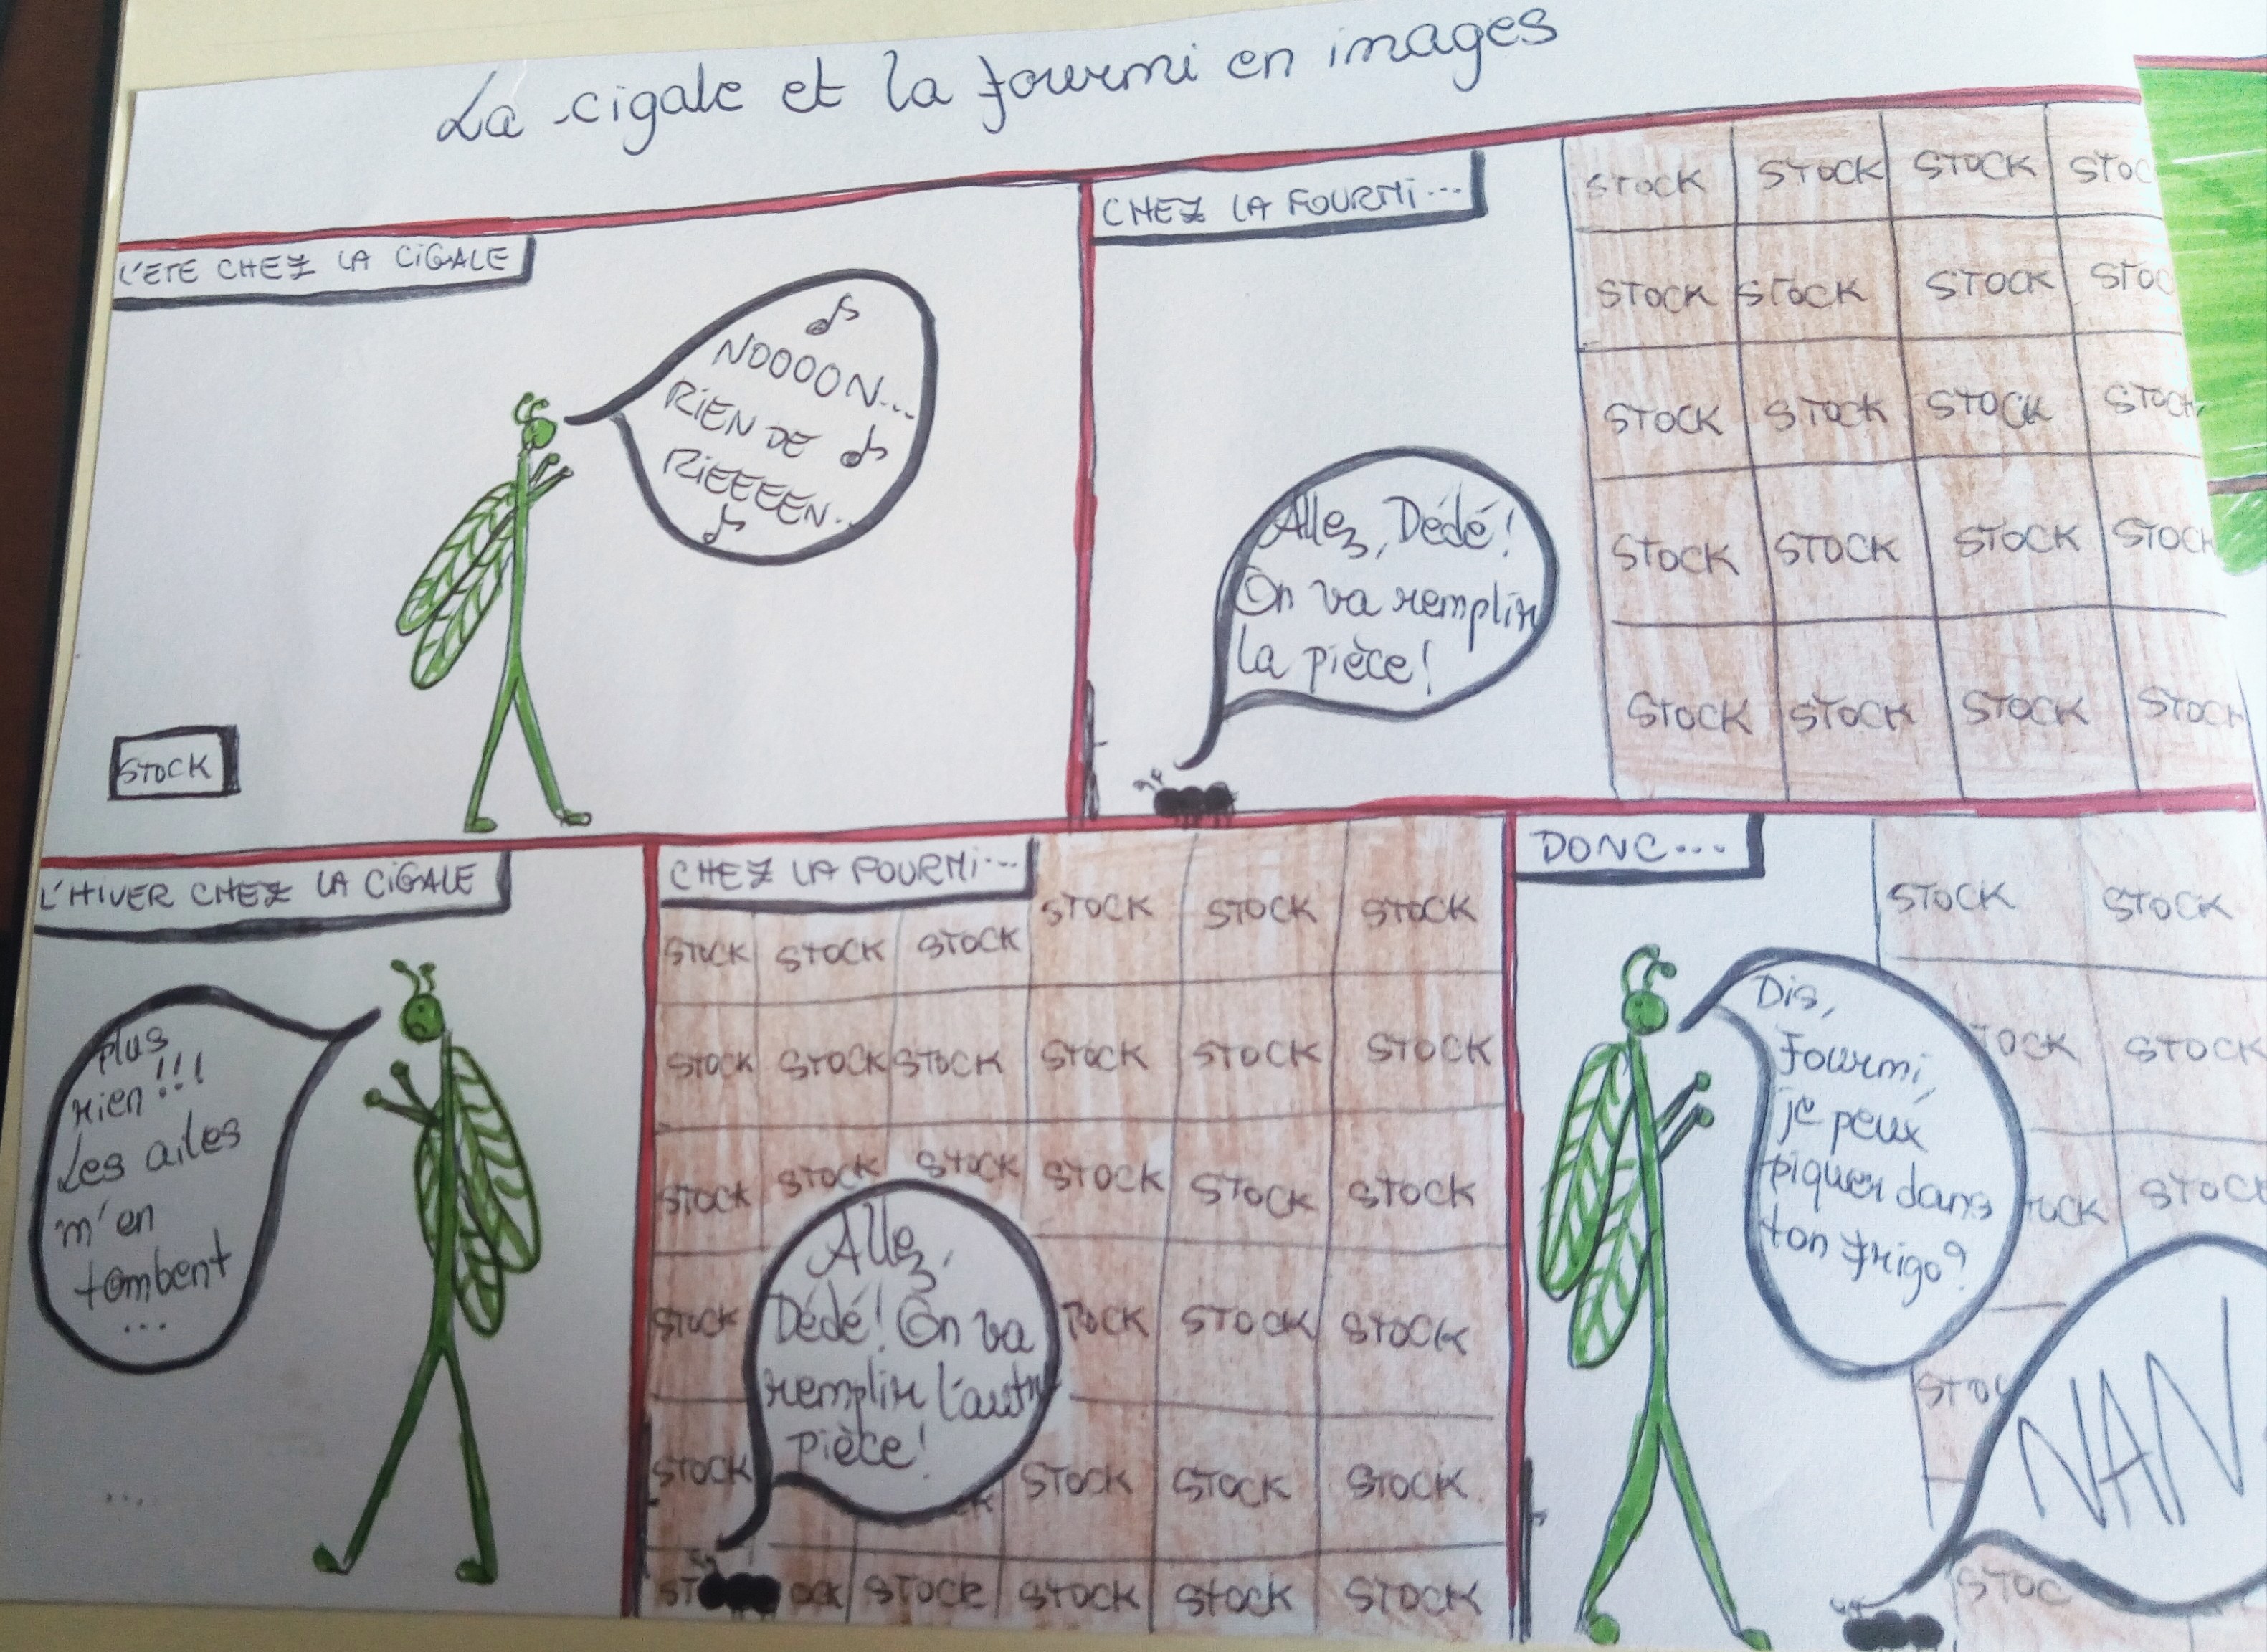 La cigale et la fourmi en images
L'ETE CHEZ LA CIGALE
NOOOON...
RIEN DE
RIEEEEN..
STOCK
CHEZ LA FOURMI...
Allez, Dédé!
On va remplir
la pièce!
STOCK STOCK STOCK STOC
STOCK STOCK STOCK STOC
STOCK STOCK STOCK STOCK
STOCK STOCK STOCK STOCK
STOCK STOCK STOCK STOCK
L'HIVER CHEZ LA CIGALE
plus
rien!!!
Les ailes
m'en
tombent
...
....
CHEZ LA FOURMI...
STOCK STOCK STOCK STOCK STOCK STOCK
STOCK STOCK STOCK STOCK STOCK STOCK
STOCK STOCK STOCK STOCK STOCK STOCK
STOCK TOCK STOCK STOCK
STOCK CK STOCK STOCK STOCK
ST OCK STOCK STOCK STOCK STOCK
Allez,
Dédé! On va
remplir l'autr
pièce!
DONC...
Dis,
Fourmi,
je peux
piquer dans
ton frigo?
STOCK STOCK
TOCK STOCK
TOCK STOCK
STOC
STOC
NAN